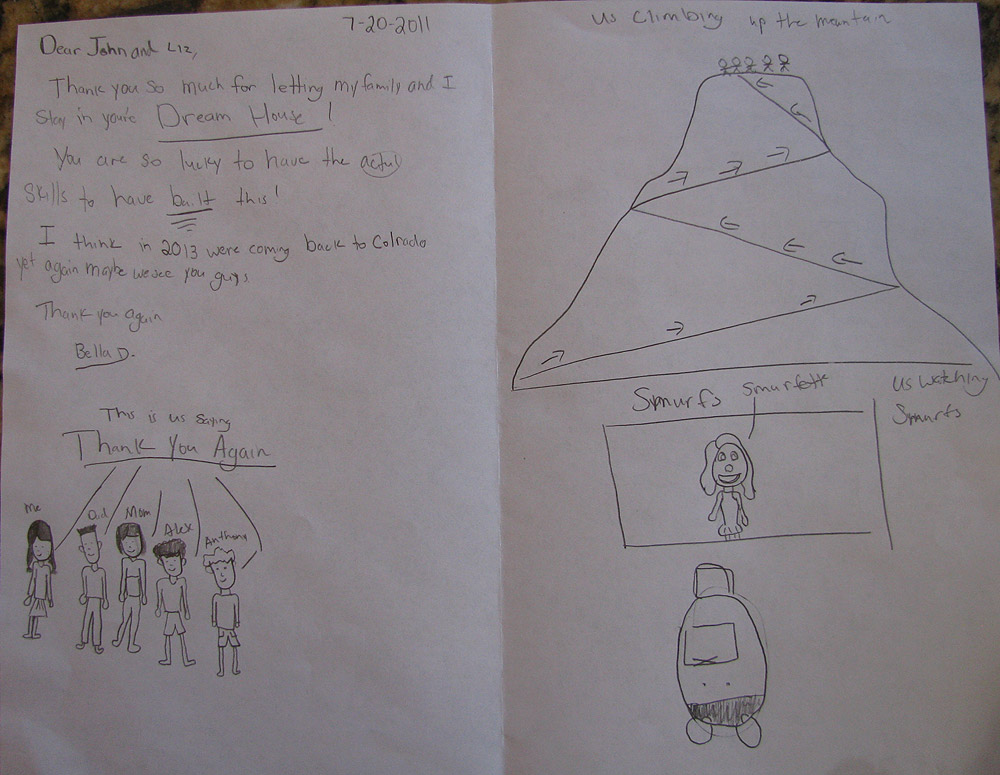 7-20-2011
Dear John and Liz,
Thank you so much for letting my family and I
stay in you're Dream House!
You are so lucky to have the actul
skills to have built this!
I think in 2013 were coming back to Colrado
yet again maybe we see you guys
Thank you again
Bella D.
This is us saying
Thank You Again
Me
Dad
Mom
Alex
Anthony
us climbing up the mountain
Smurfs
smurfett
us watching
Smurfs